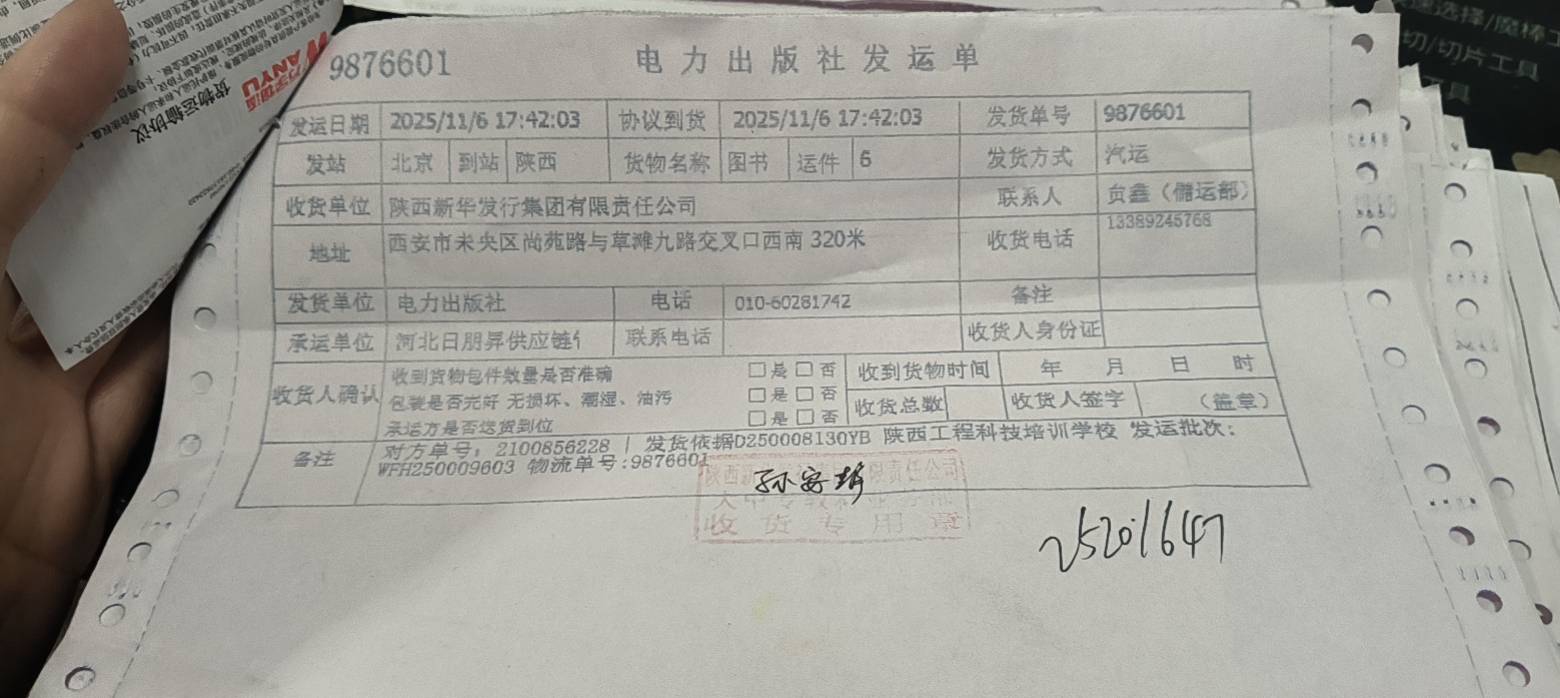 9876601
电力出版社发运单
发运日期 2025/11/6 17:42:03 协议到货 2025/11/6 17:42:03 发货单号 9876601
发站 北京 到站 陕西 货物名称 图书 运件 6 发货方式 汽运
收货单位 陕西新华发行集团有限责任公司 联系人 贠鑫（储运部）
地址 西安市未央区尚苑路与草滩九路交叉口西南 320米 收货电话 13389245768
发货单位 电力出版社 电话 010-60281742 备注
承运单位 河北日朋昇供应链 联系电话 收货人身份证
收货人确认 收到货物包件数量是否准确 □是□否 收到货物时间 年 月 日 时
包装是否完好 无损坏、潮湿、油污 □是□否 收货总数 收货人签字 （盖章）
承运方是否送货到位 □是□否
备注 对方单号：2100856228 | 发货依据D250008130YB 陕西工程科技培训学校 发运批次：
WFH250009603 物流单号:9876601
陕西新 限责任公司
收货专用章
25201647
万宇物流
WANYU
货物运输协议
速选择/魔棒工
切/切片工具